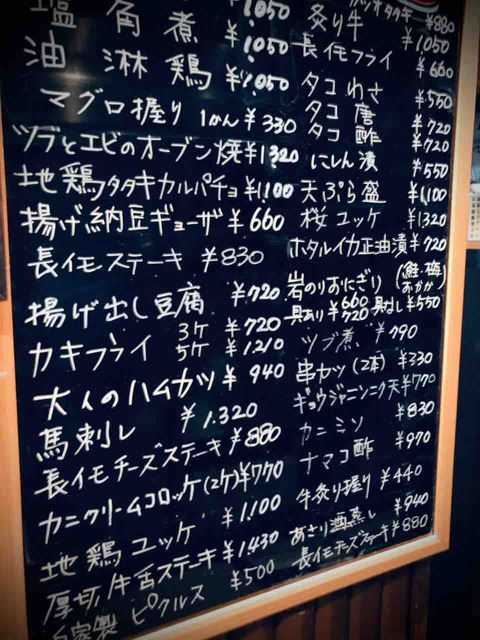 塩角煮 ¥1050
油淋鶏 ¥1050
マグロ握り 1かん ¥330
ツブとエビのオーブン焼 ¥1320
地鶏タタキカルパチョ ¥1,100
揚げ納豆ギョーザ ¥660
長イモステーキ ¥830
揚げ出し豆腐 ¥720
カキフライ 3ケ ¥720
5ケ ¥1210
大人のハムカツ ¥940
馬刺し ¥1,320
長イモチーズステーキ ¥880
カニクリームコロッケ(2ケ) ¥770
地鶏ユッケ ¥1,100
厚切り牛舌ステーキ ¥1430
自家製ピクルス ¥500
¥880
炙り牛 ¥1050
長イモフライ ¥660
タコわさ ¥550
タコ唐 ¥720
タコ酢 ¥720
にしん漬 ¥550
天ぷら盛 ¥1,100
桜ユッケ ¥1320
ホタルイカ正油漬 ¥720
岩のりおにぎり (鮭・梅 おかか)
具あり ¥660 ¥720 具なし ¥550
ツブ煮 ¥790
串カツ (2本) ¥330
ギョウジャニンニク天 ¥770
カニミソ ¥830
ナマコ酢 ¥970
牛炙り握り ¥440
あさり酒蒸し ¥940
長イモチーズステーキ ¥880